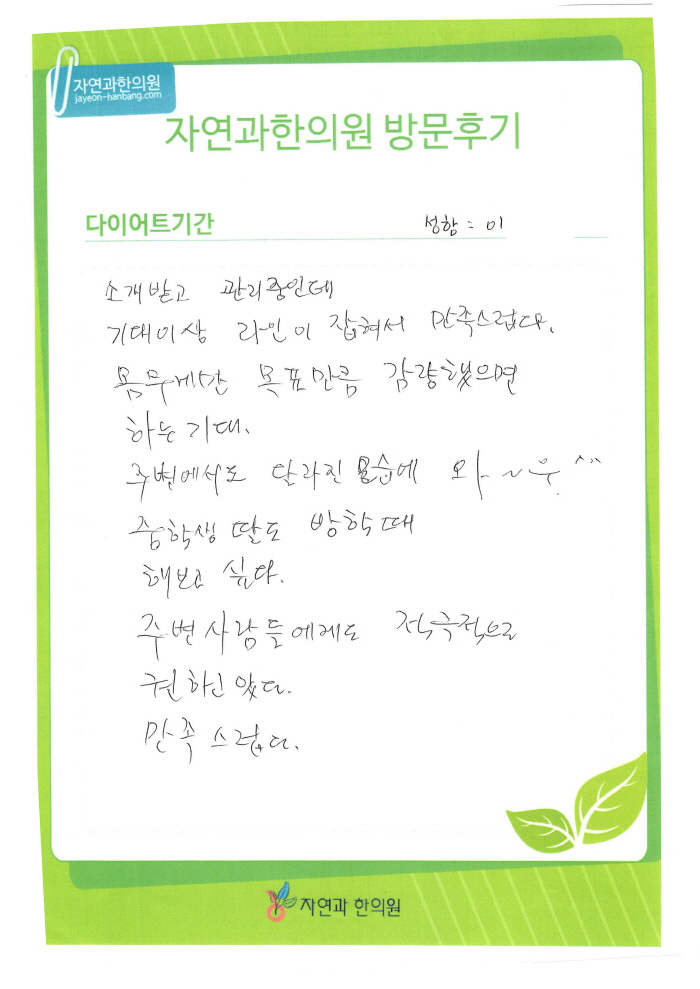 자연과한의원
jayeon-hanbang.com
자연과한의원 방문후기
다이어트기간 성함 : 이
소개받고 관리중인데
기대이상 라인이 잡혀서 만족스럽다.
몸무게만 목표만큼 감량했으면
하는 기대.
주변에서도 달라진 모습에 와~우 ^^
중학생 딸도 방학때
해보고 싶다.
주변사람들에게도 적극적으로
권하고 있다.
만족스럽다.
자연과 한의원